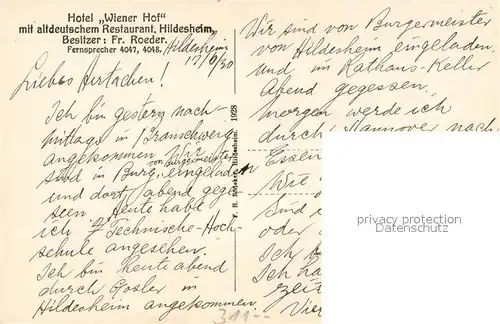 Hotel „Wiener Hof"
mit altdeutschem Restaurant, Hildesheim,
Besitzer: Fr. Roeder.
Fernsprecher 4047, 4048.
Hildesheim
17/6/30
Liebes Hertachen!
Ich bin gestern nach-
mittags in Braunschweig
angekommen. Wir
sind in Burg, eingeladen
von Burgermeister
und dort abend geges-
sen. Heute habe
ich Technische-Hoch-
schule angesehen.
Ich bin heute abend
durch Goslar in
Hildesheim angekommen.
1928
Hildesheim.
Wir sind von Burgermeister
von Hildesheim eingeladen
und in Rathaus-Keller
Abend gegessen.
Morgen werde ich
durch Hannover nach
Essen
Wie
Sind
oder
Ich
Ich ha
zeit
Vie
311--
www.ansichtskarten-